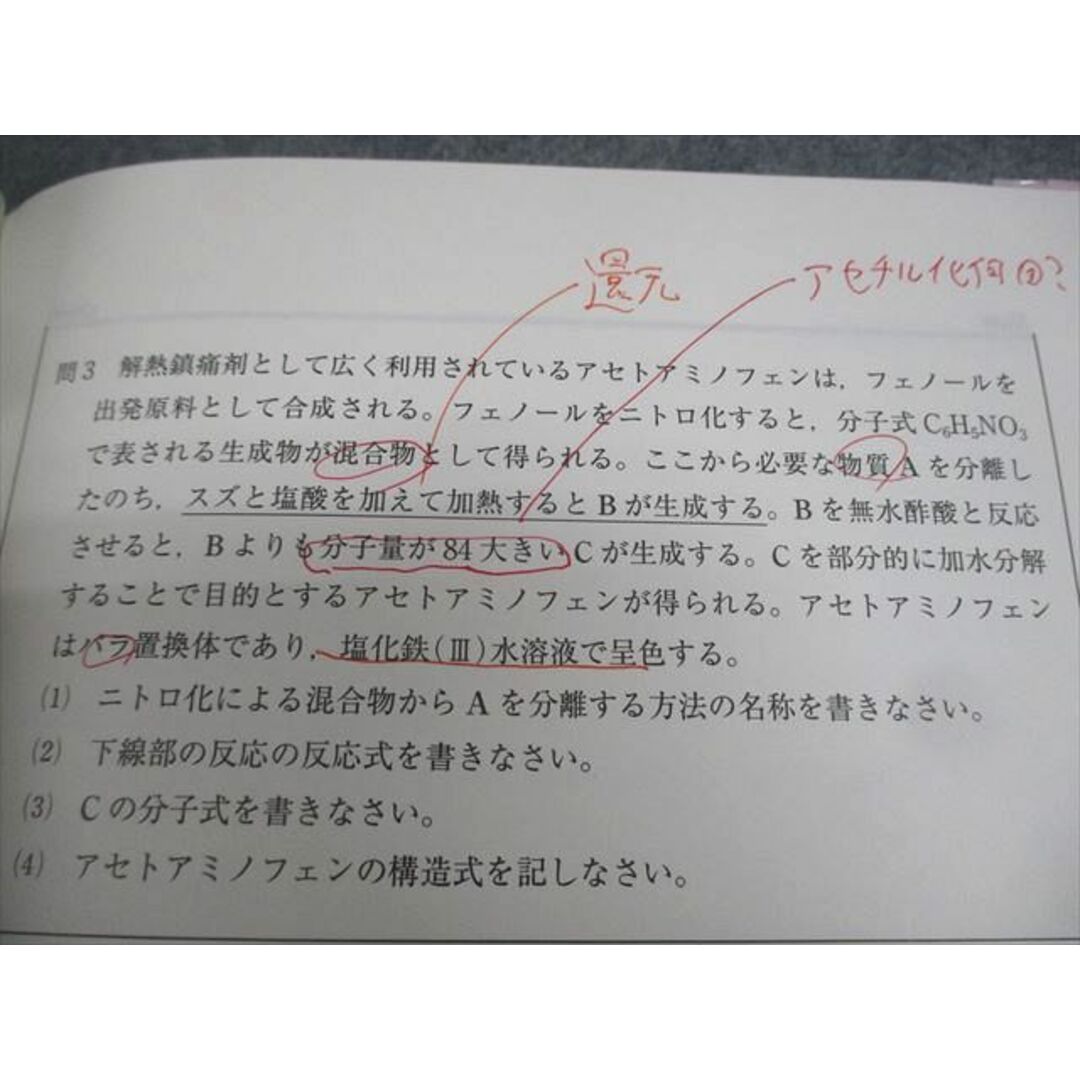 還元
アセチル化何回?
問3 解熱鎮痛剤として広く利用されているアセトアミノフェンは，フェノールを
出発原料として合成される。フェノールをニトロ化すると，分子式C₆H₅NO₃
で表される生成物が混合物として得られる。ここから必要な物質Aを分離し
たのち，スズと塩酸を加えて加熱するとBが生成する。Bを無水酢酸と反応
させると，Bよりも分子量が84大きいCが生成する。Cを部分的に加水分解
することで目的とするアセトアミノフェンが得られる。アセトアミノフェン
はパラ置換体であり，塩化鉄(Ⅲ)水溶液で呈色する。
(1) ニトロ化による混合物からAを分離する方法の名称を書きなさい。
(2) 下線部の反応の反応式を書きなさい。
(3) Cの分子式を書きなさい。
(4) アセトアミノフェンの構造式を記しなさい。